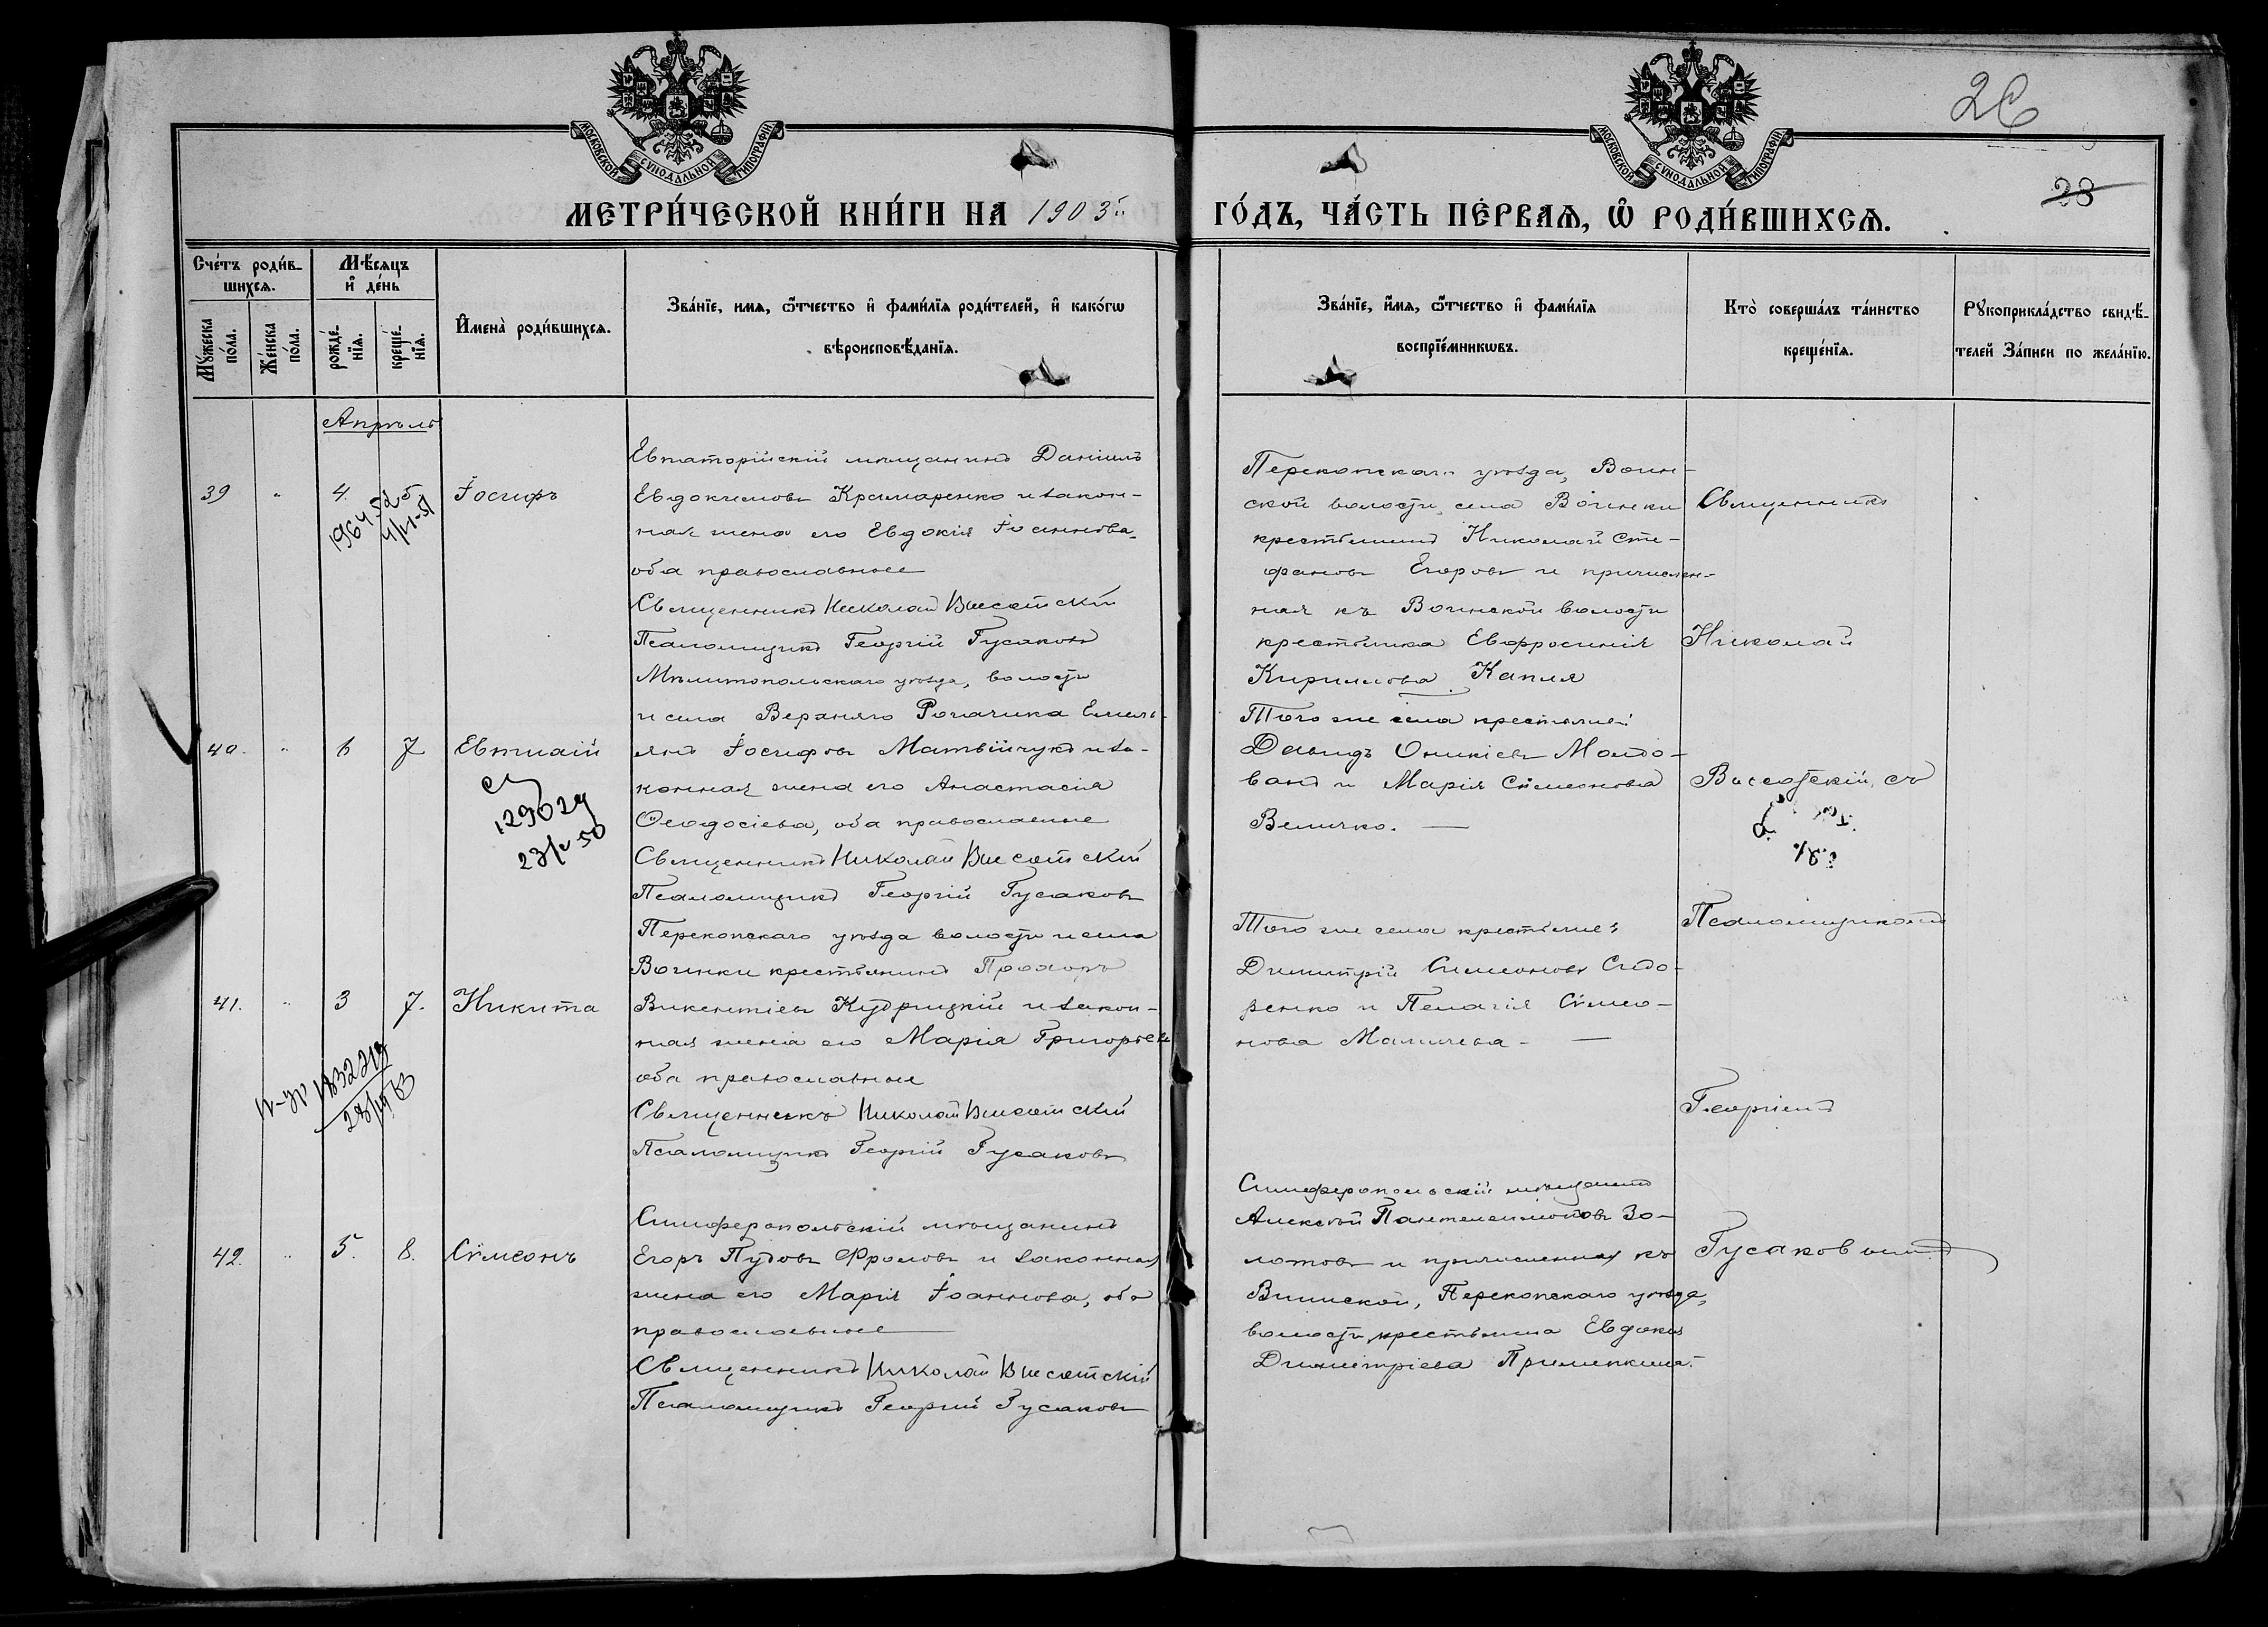 МОСКОВСКОЙ СѴНОДАЛЬНОЙ ТИПОГРАФІИ
МОСКОВСКОЙ СѴНОДАЛЬНОЙ ТИПОГРАФІИ
26
28
МЕТРИ́ЧЕСКОЙ КНИ́ГИ НА 1903й
ГО́ДЪ, ЧА́СТЬ ПЕ́РВАѦ, Ѡ҆ РОДИ́ВШИХСѦ.
Сче́тъ роди́в-
шихсѧ.
Мѣ́сѧцъ
и҆ де́нь
Мꙋ́жеска
по́ла.
Же́нска
по́ла.
рожде́-
нїѧ.
креще́-
нїѧ.
И҆мена̀ роди́вшихсѧ.
Зва́нїе, имѧ, ѻ҆́тчество и҆ фами́лїѧ роди́телей, и҆ како́гѡ
вѣроисповѣ́данїѧ.
Зва́нїе, и҆́мѧ, ѻ҆́тчество и҆ фами́лїѧ
воспрїе́мникѡвъ.
Кто̀ соверша́лъ та́инство
креще́нїѧ.
Рꙋкоприкла́дство свидѣ́-
телей за́писи по жела́нїю.
Апрѣль
39 " 4. 5 Іосифъ
Евпаторійскій мѣщанинъ Даніилъ
Евдокимовъ Крамаренко и закон-
ная жена его Евдокія Іоаннова,
оба православные
Священникъ Николай Высотскій
Псаломщикъ Георгій Гусаковъ
Перекопскаго уѣзда, Воин-
ской волости, села Воинки
крестьянинъ Николай Сте-
фановъ Егоровъ и причислен-
ная къ Воинской волости
крестьянка Евфросинія
Кириллова Капля
Священникъ
Николай
40. " 6 7 Евтихій
Мелитопольскаго уѣзда, волости
и села Верхняго Рогачика Емель-
янъ Іосифовъ Матвійчукъ и за-
конная жена его Анастасія
Ѳеодосіева, оба православные
Священникъ Николай Высотскій
Псаломщикъ Георгій Гусаковъ
129029
23/V 50
Того же села крестьяне:
Давидъ Оникіевъ Молдо-
ванъ и Марія Сѵмеонова
Величко.
Высотскій, съ
41. " 3 7. Никита
Перекопскаго уѣзда волости и села
Воинки крестьянинъ Прохоръ
Викентіевъ Кудрицкій и закон-
ная жена его Марія Григорьева
оба православные
Священникъ Николай Высотскій
Псаломщикъ Георгій Гусаковъ
Того же села крестьяне:
Димитрій Симеоновъ Сидо-
ренко и Пелагія Сѵмео-
нова
Псаломщикомъ
Георгіемъ
42. " 5. 8. Сѵмеонъ
Симферопольскій мѣщанинъ
Егоръ Пудовъ Фроловъ и законная
жена его Марія Іоаннова, оба
православные
Священникъ Николай Высотскій
Псаломщикъ Георгій Гусаковъ
Симферопольскій мѣщанинъ
Алексѣй Пантелеимоновъ Зо-
лотовъ и причисленная къ
Воинской, Перекопскаго уѣзда,
волости, крестьянка Евдокія
Димитріева
Гусаковымъ